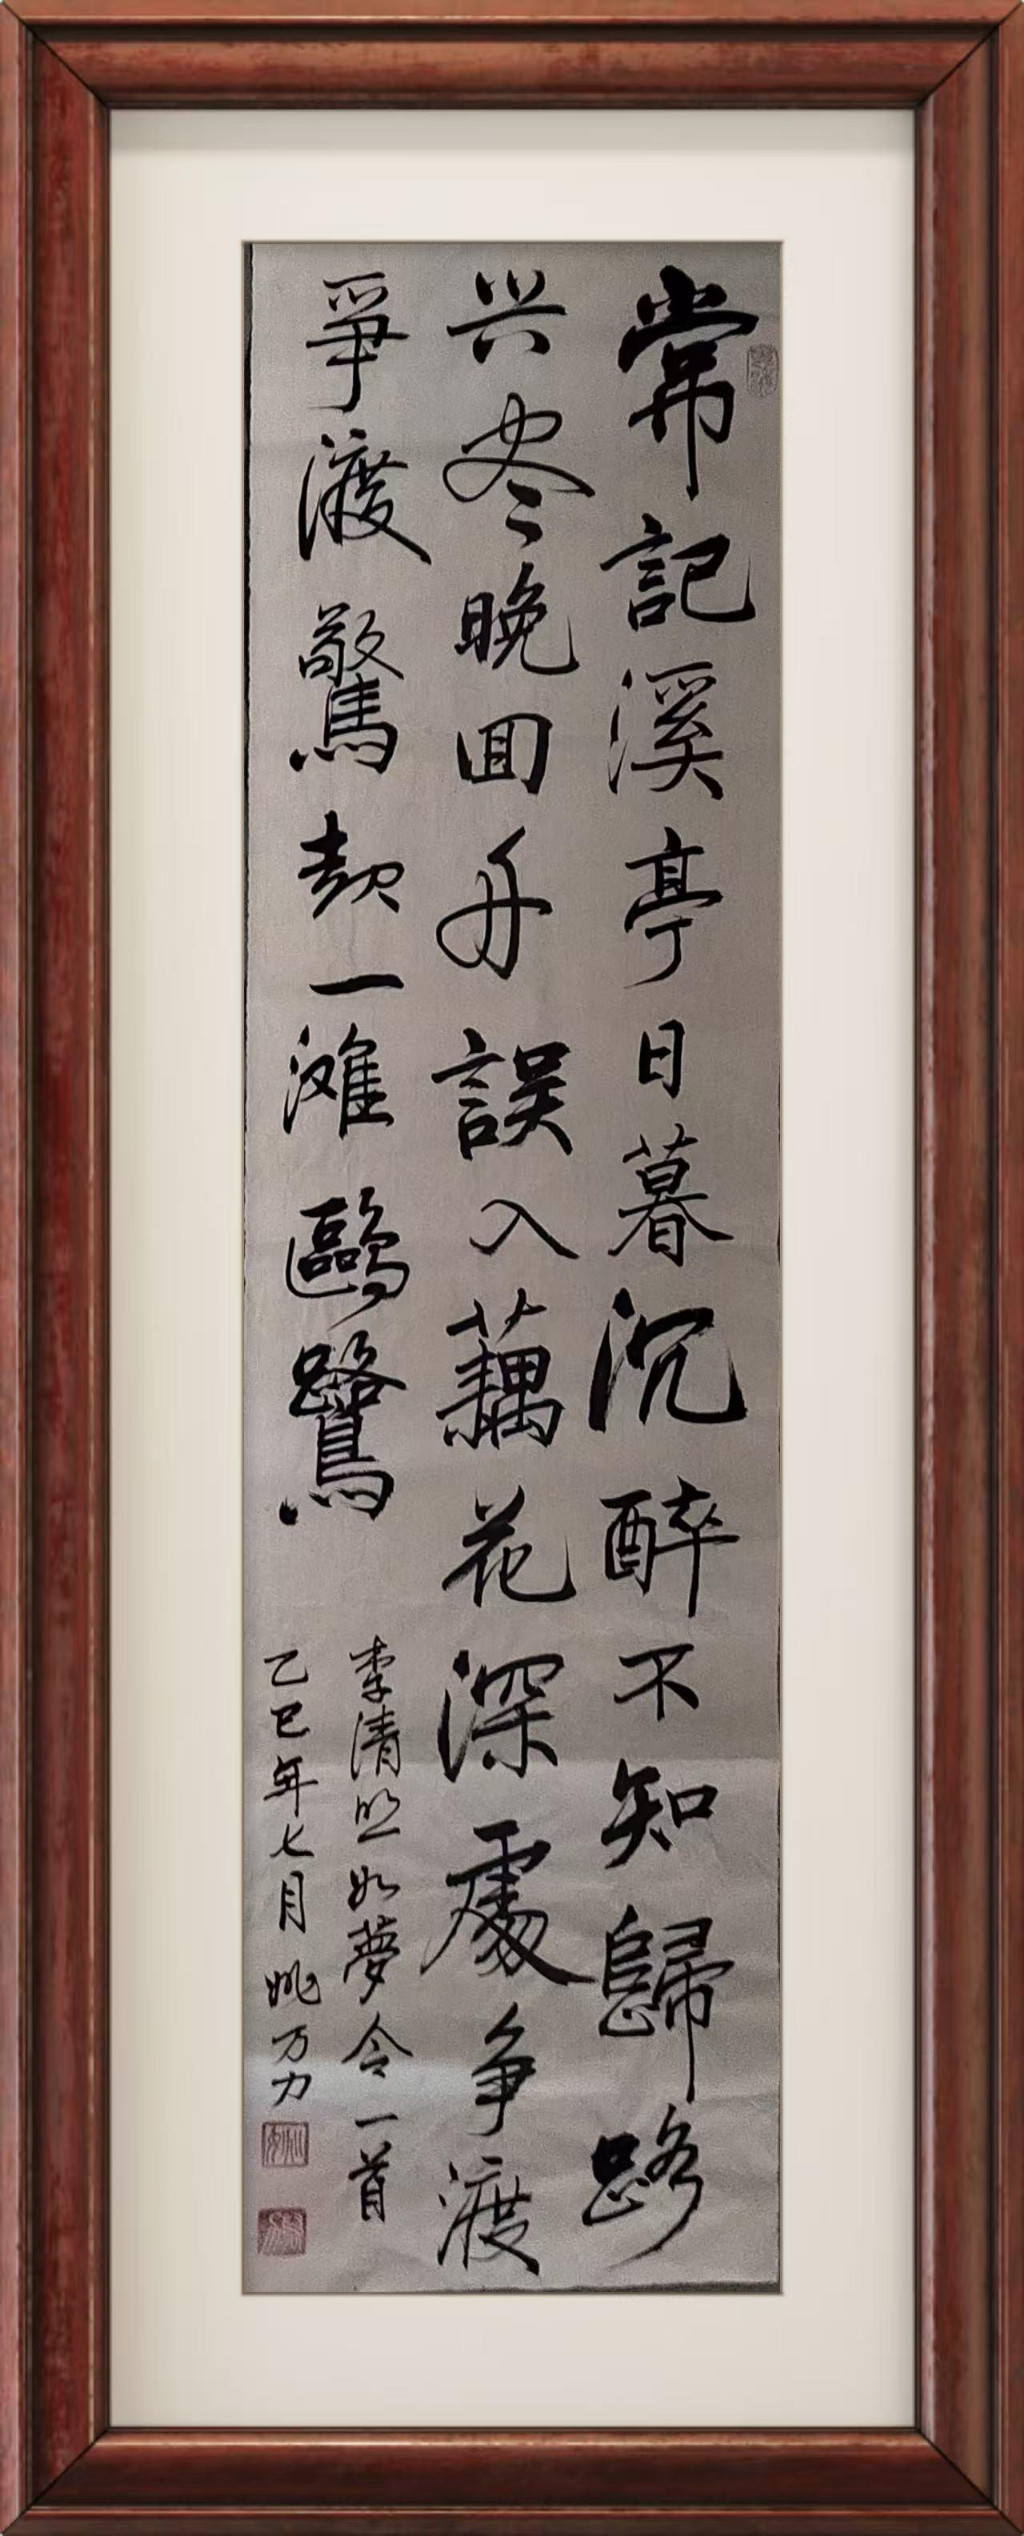 常記溪亭日暮沉醉不知歸路
兴尽晚回舟誤入藕花深處争渡
爭渡驚起一滩鷗鷺
李清照如夢令一首
乙巳年七月姚万力